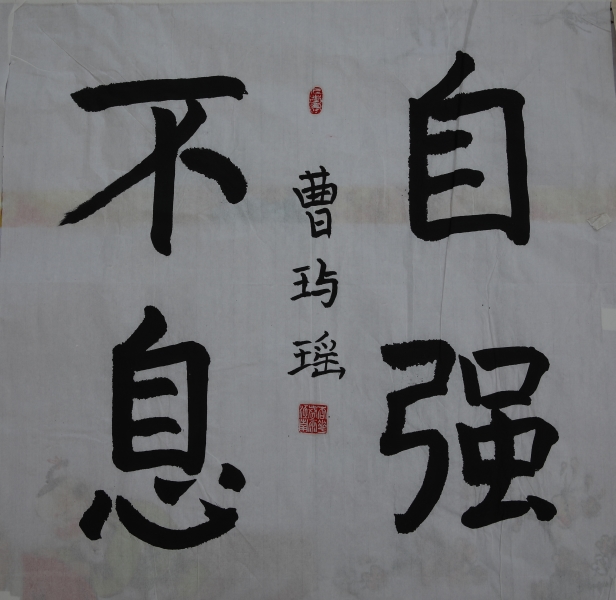 自强
不息
曹玙瑶